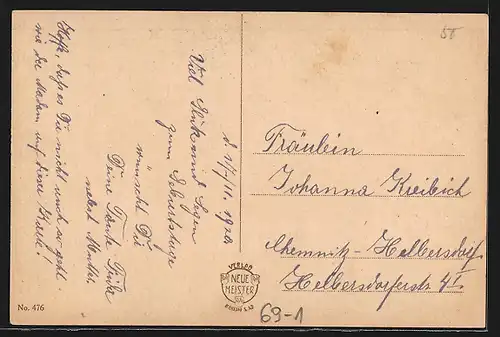 d. 21/11. 1920
Viel Glück und Segen
zum Geburtstage
wünscht Dir
Deine Tante Frida
nebst Mutter.
Hoffe, dass es Dir nicht auch so geht
wie der Madam auf dieser Karte!
50
Fräulein
Johanna Kreibich
Chemnitz-Helbersdorf
Helbersdorferstr. 41
VERLAG
NEUE
MEISTER
BERLIN
No. 476
69-1